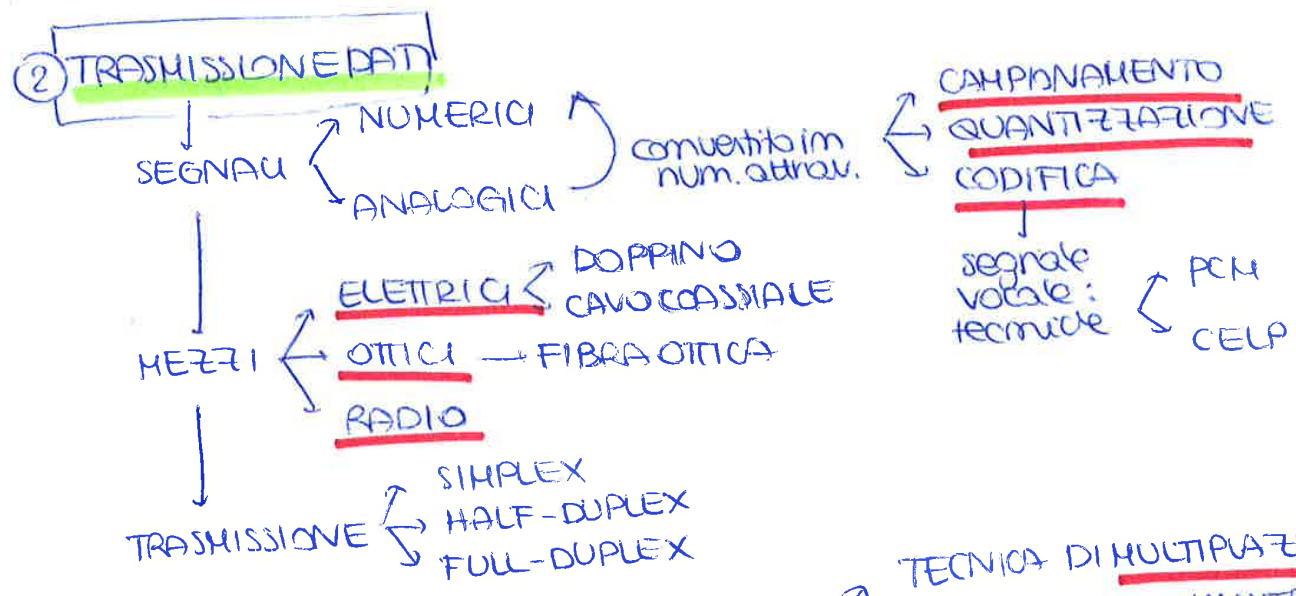 ② TRASMISSIONE DATI
SEGNALI
NUMERICI
ANALOGICI
convertito in
num. attrav.
CAMPIONAMENTO
QUANTIZZAZIONE
CODIFICA
segnale
vocale:
tecniche
PCM
CELP
MEZZI
ELETTRICI
DOPPINO
CAVO COASSIALE
OTTICI → FIBRA OTTICA
RADIO
TRASMISSIONE
SIMPLEX
HALF-DUPLEX
FULL-DUPLEX
TECNICA DI MULTIPLAZ